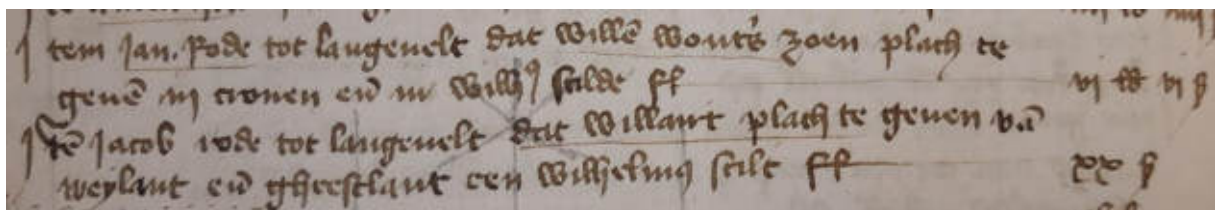 Item Jan. Rode tot langevelt dat willē wout's zoen plach te
gevē iij cronen eñ iii wilh' scilde ff vj lb vj ß
Itē Jacob rode tot langevelt dat willant plach te geven vā
weylant eñ gheestlant een wilhelmus scilt ff xx ß